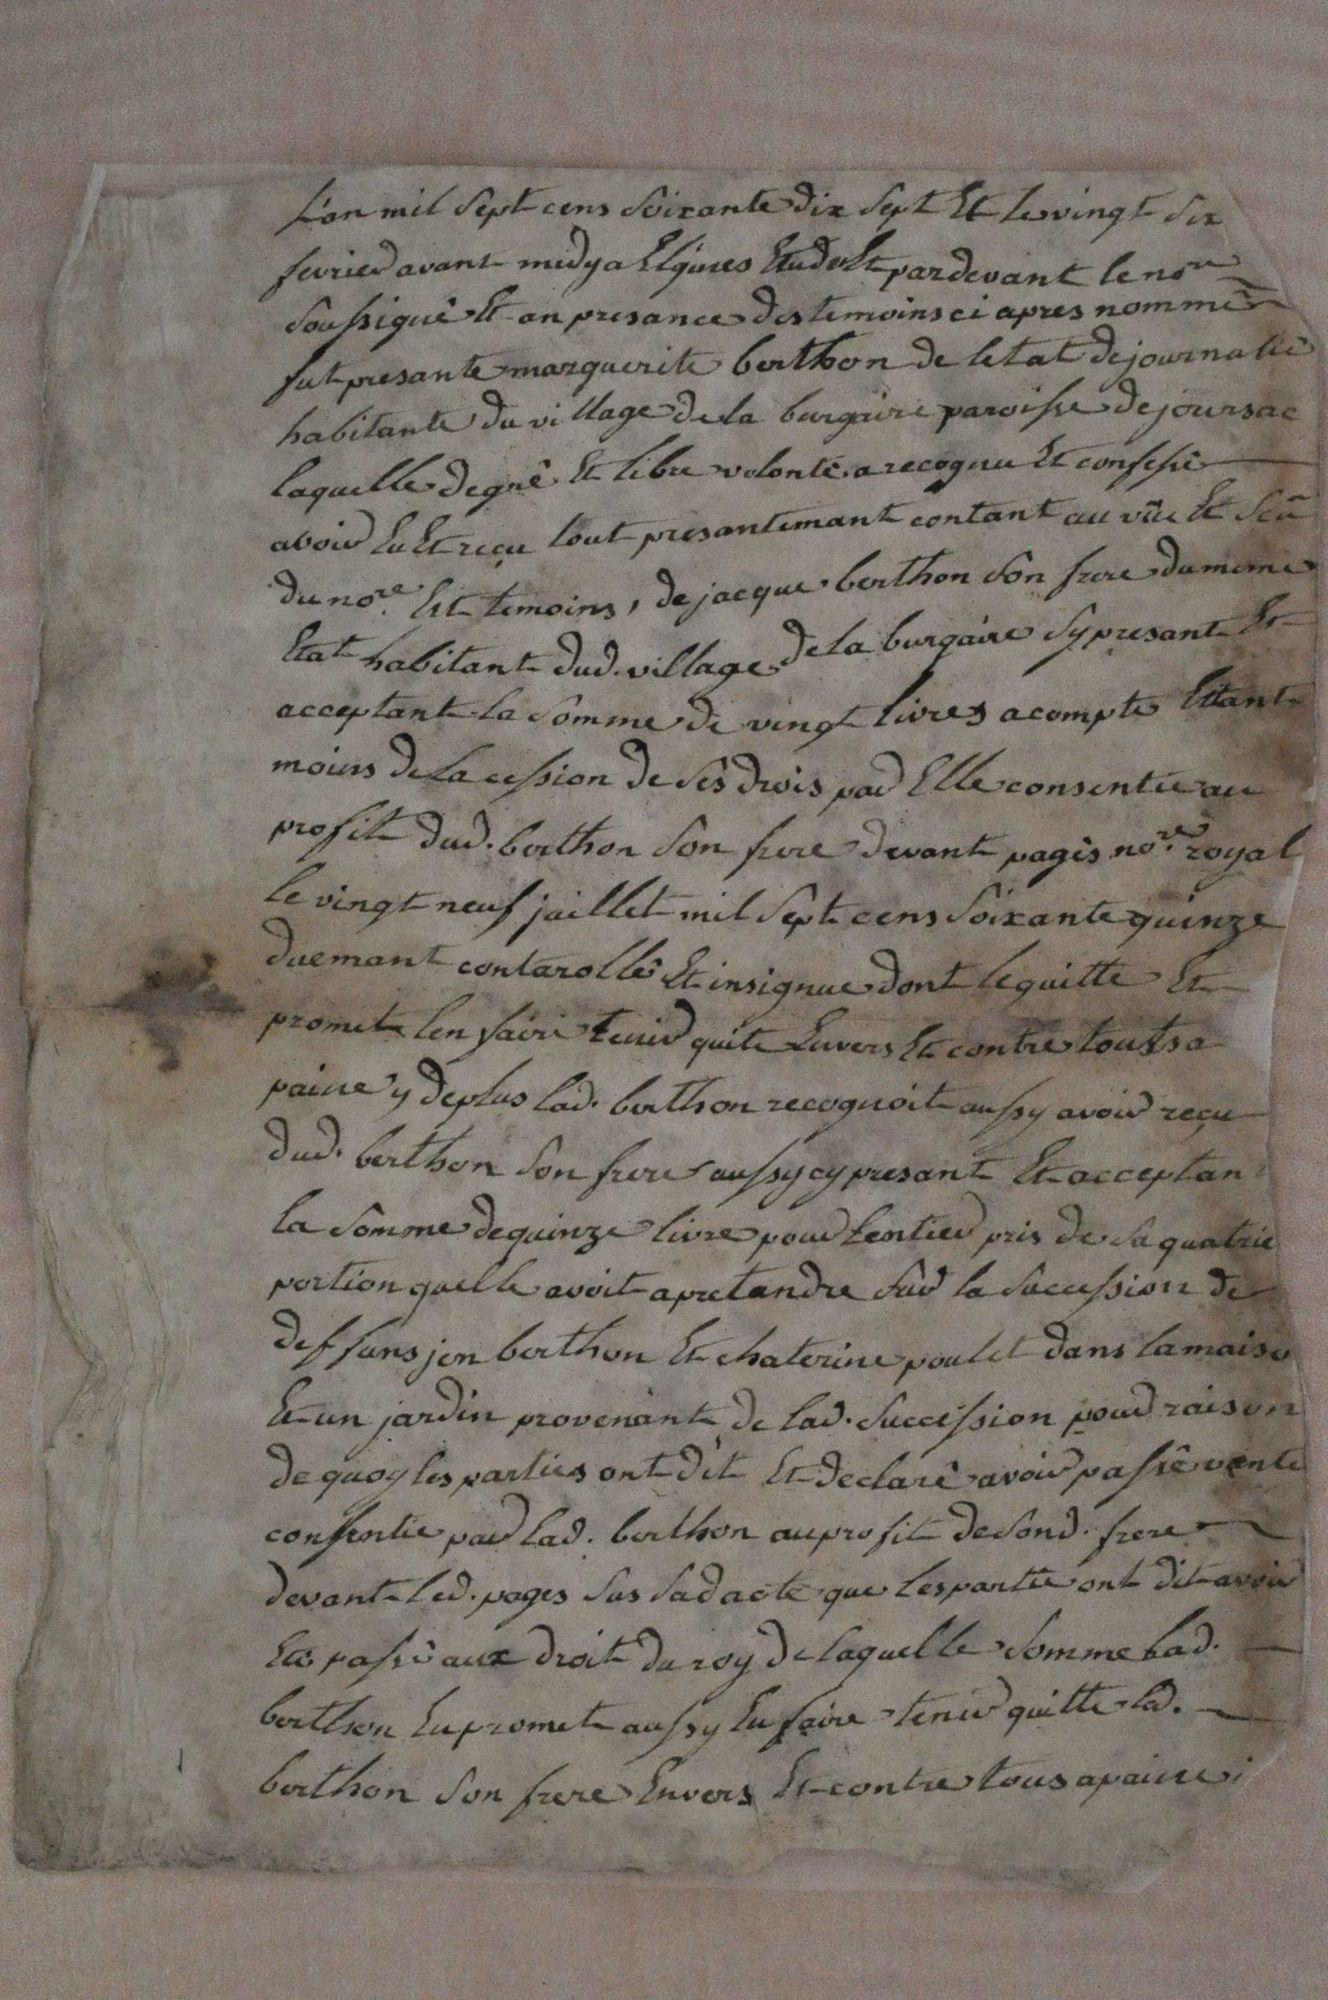 L'an mil sept cens soixante dix sept Et le vingt six
fevrier avant midy a Etude Et pardevant le no.re
soussigné Et an presance des temoins ci apres nommé
fut presante marguerite berthon de letat de journalie
habitante du village de la burgaire paroisse de joursac
laquelle de gré Et libre volonté a recognu Et confessé
avoir Eu Et reçu tout presantemant contant au vûe Et sçû
du no.re Et temoins, de jacque berthon son frere du meme
Etat habitant dud. village de la burgaire sy presant Et
acceptant la somme de vingt livres acompte Et tant
moins de la cession de ses drois par Elle consentie au
profit dud. berthon son frere devant pagès no.re royal
le vingt neuf juillet mil sept cens soixante quinze
duemant contarollé Et insignue dont le quitte Et
promet len faire tenir quite Envers Et contre touts a
paine y de plus lad. berthon recognoit aussy avoir reçu
dud. berthon son frere aussy cy presant Et acceptan
la somme de quinze livre pour Lentier pris de sa quatrie
portion quelle avoit a pretandre sur la sucession de
deffuns jen berthon Et chaterine poulet dans la maiso
Et un jardin provenant de lad. succession pour raison
de quoy les parties ont dit Et declaré avoir passé vente
consentie par lad. berthon au profit de sond. frere
devant led. pages sus sad acte que les partie ont dit avoir
Ete passé aux droit du roy de laquelle somme lad.
berthon En promet aussy En faire tenir quitte led.
berthon son frere Envers Et contre tous a paine